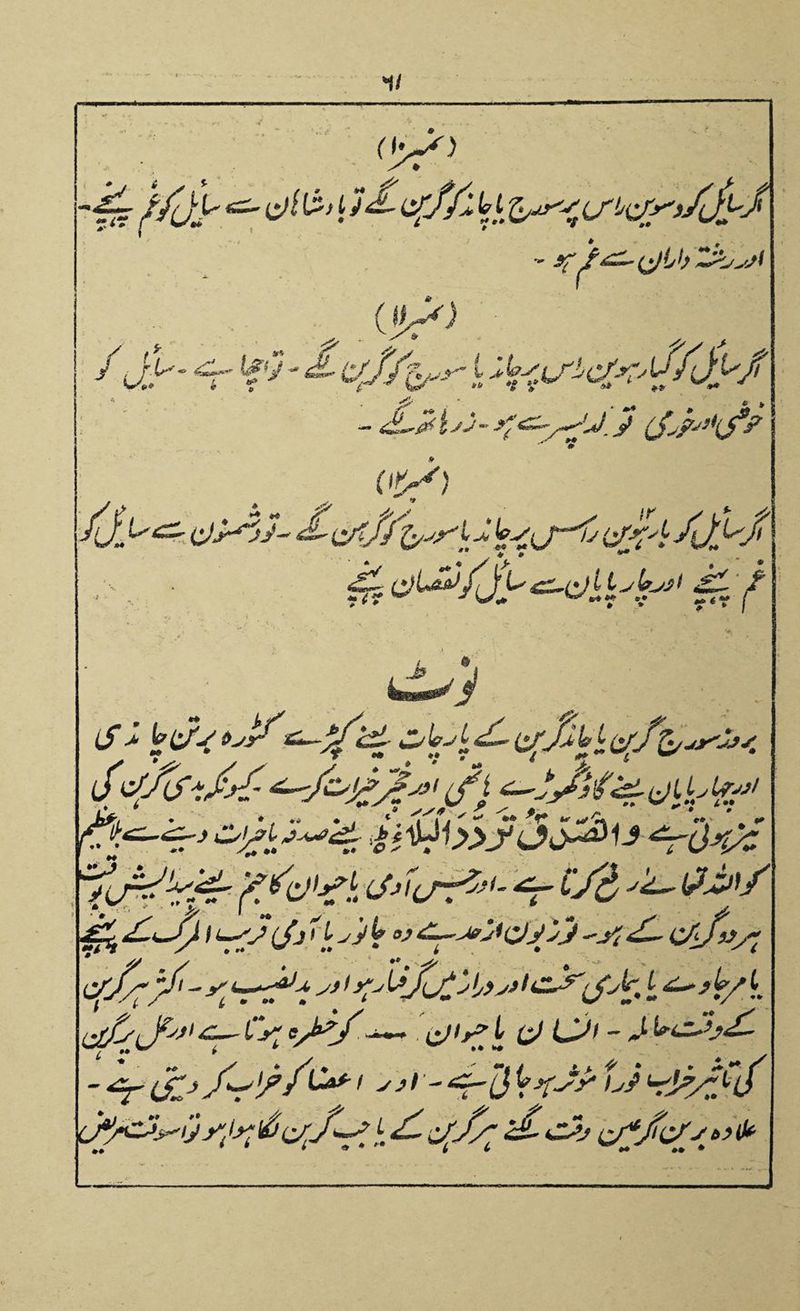 ۶۱
(نمبر۱۰)
اگر سائل کو دسویں بارس پر سورج یا چاند گرہن لگے تو بادشاہان سے سائل کو غم پہنچے۔
اور رشتہ داران سے غم ہو۔
(نمبر۱۱)
اگر سائل کو گیارہویں بارس پر چاند یا سورج گرہن لگے۔ تو اچھا ہے۔ سائل کو
خوشی اور خرمی تو لد پسر سے ہو۔ زر ہاتھ لگے۔
(نمبر۱۲)
اگر سائل کو بارہویں بارس پر چاند یا سورج گرہن لگے۔ تو دشمنوں سے سائل کو
غم پہنچے اور چارپایان سے سائل کو نقصان پہنچے
نوٹ
بروز سورج گرہن یا چاند گرہن کے پارچات یعنے کپڑے کنورہ برتن چاندی
اور چارپایان یعنے گاؤ گھوڑے ہاتھی اور خیر خیرات کرے۔ کیونکہ یہی گرہن کی
خیر ہوتی ہے وَالصَّدَقَۃُ تَرُدُّ الْبَلَاء یعنے صدقہ یا خیرات دینے سے بلا
کو اللہ تعالیٰ رفع کرتا ہے۔ اور جس آدمی یا حیوان کا جنم یعنے پیدایش وقت
ہر دو گرہن کے ہو۔ تو وہ ان از حد سے وہ جانور یا آدمی قریب المرگ کے پہنچے
یا مر جاوے یا بیماری سخت اور دراز میں گرفتار ہو اور بد نصیب ہو۔ اکثر ہر گرہن
کے وقت جاندار۔ انسان یا حیوان کو خطرہ ہوتا ہے اور شکل گرہن
کی تاثیر خراب فوراً موثر ہو جاتی ہے۔ اور اعضا کو خراب کر دیتی ہے۔
علاوہ بریں اگر کسی وقت لگنے ہر گرہن کے یا جب گرہن لگا ہوا ہو تو اس وقت مریض